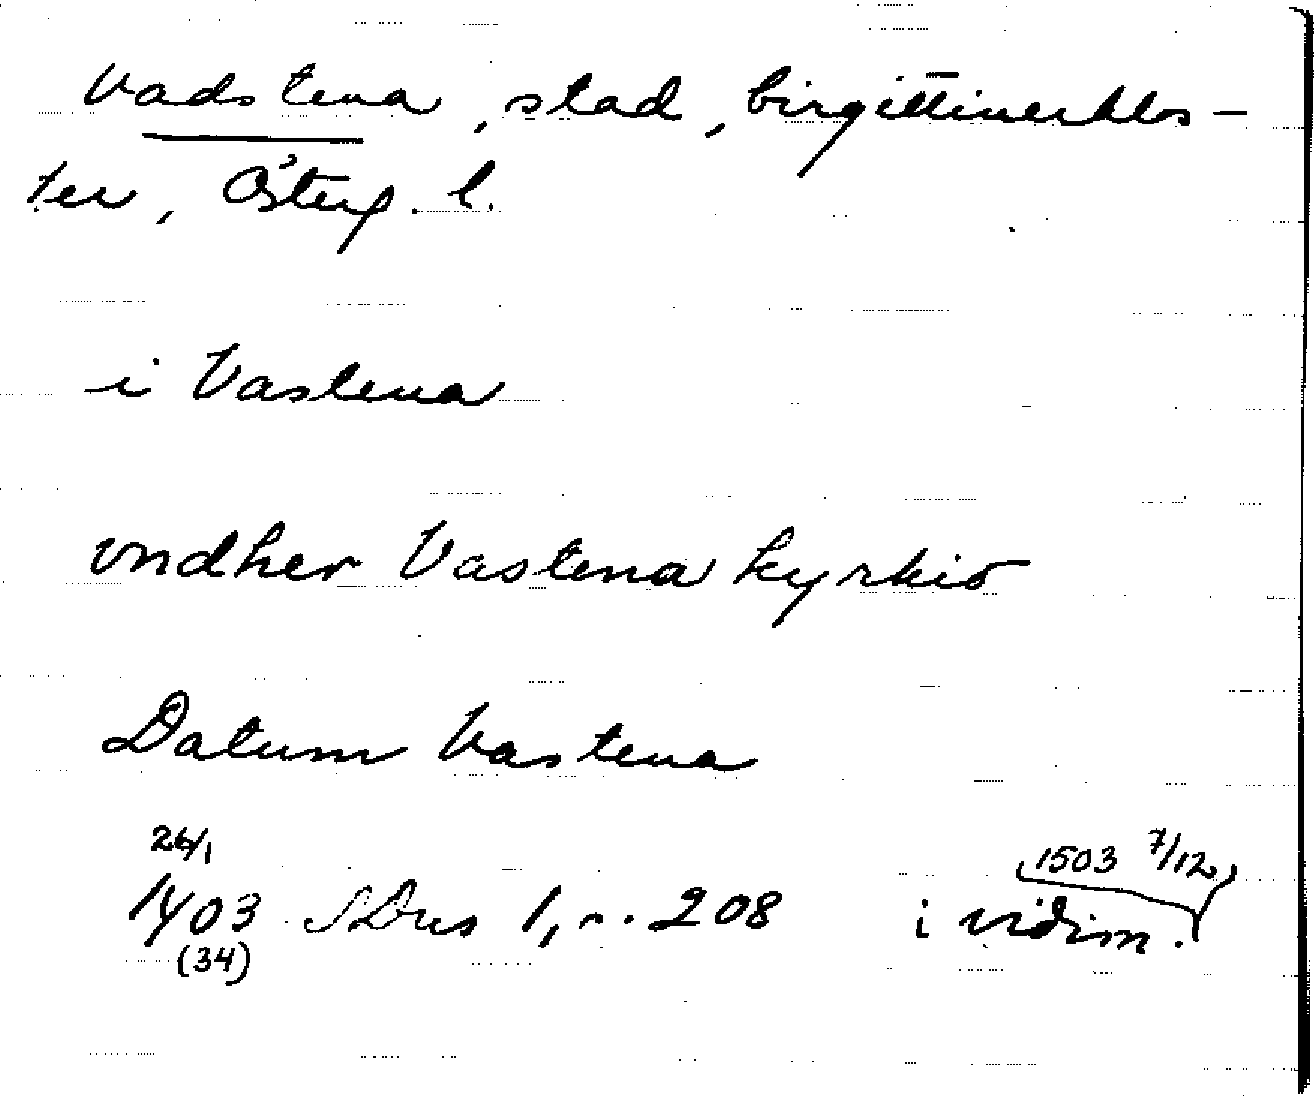 Vadstena, stad, birgittinerklos-
ter, Österg. l.
i Vastena
vndher Vastena kyrkio
Datum Vastena
26/1
1403 SDns 1, n. 208 i vidim. 1503 7/12
(34)